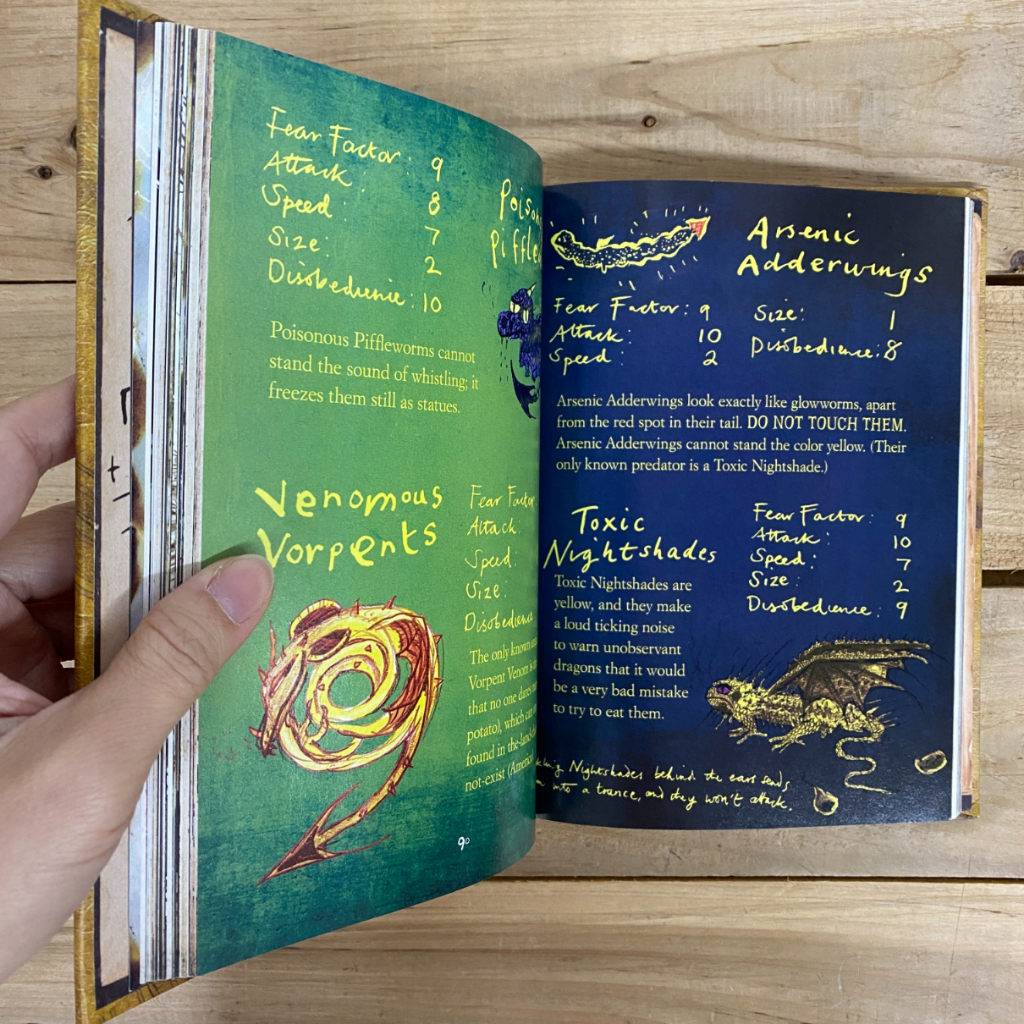 Fear Factor: 9
Attack: 8
Speed: 7
Size: 2
Disobedience: 10
Poisonous Piffleworms cannot
stand the sound of whistling; it
freezes them still as statues.
Venomous
Vorpents
Fear Factor
Attack:
Speed:
Size:
Disobedience
The only known
Vorpent Venom is
that no one dares
potato), which can
found in the
not-exist
90
Arsenic
Adderwings
Fear Factor: 9
Attack: 10
Speed: 2
Size: 1
Disobedience: 8
Arsenic Adderwings look exactly like glowworms, apart
from the red spot in their tail. DO NOT TOUCH THEM.
Arsenic Adderwings cannot stand the color yellow. (Their
only known predator is a Toxic Nightshade.)
Toxic
Nightshades
Fear Factor: 9
Attack: 10
Speed: 7
Size: 2
Disobedience: 9
Toxic Nightshades are
yellow, and they make
a loud ticking noise
to warn unobservant
dragons that it would
be a very bad mistake
to try to eat them.
Nightshades behind the ears sends
into a trance, and they won't attack.